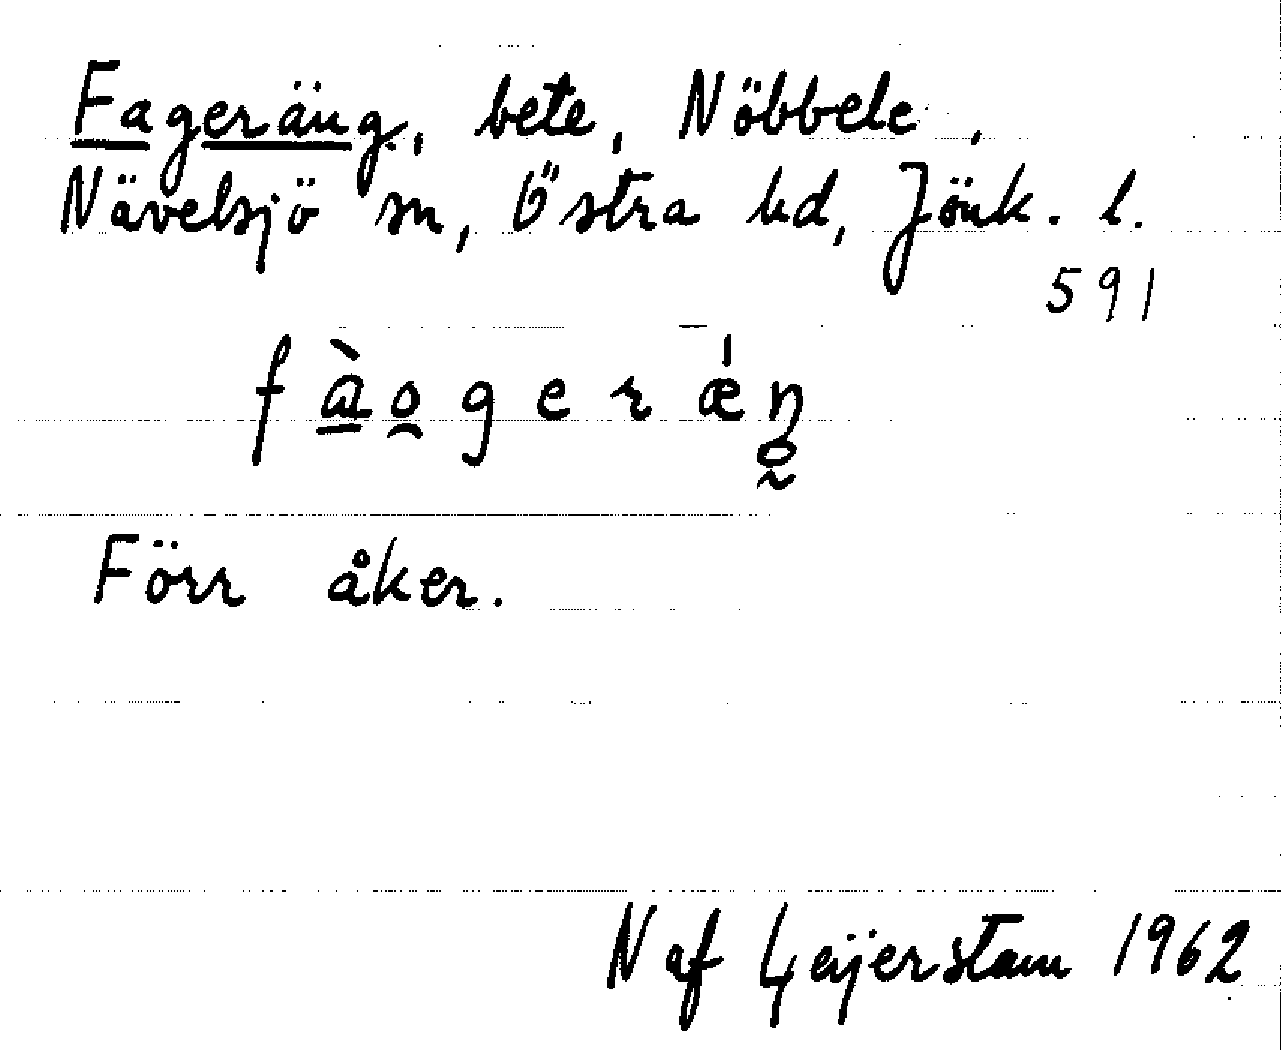 Fageräng, bete, Nöbbele,
Nävelsjö sn, Östra hd, Jönk. l.
591
fà̠o̯gerǽŋ̥
Förr åker.
N af Geijerstam 1962